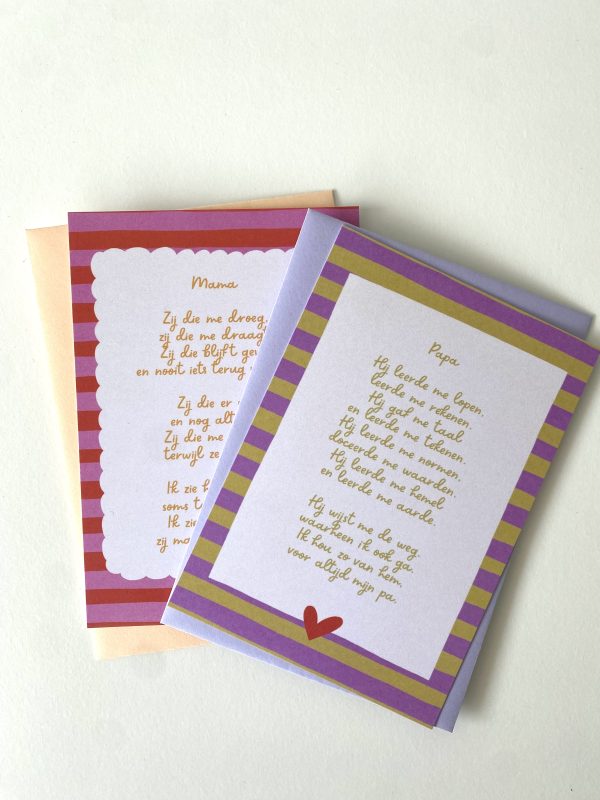 Mama
Zij die me droeg,
zij die me draag
Zij die blijft
en nooit iets terug
Zij die er
en nog
Zij die me
terwijl ze
Ik zie
soms
Ik
zij
Papa
Hij leerde me lopen,
leerde me rekenen.
Hij gaf me taal
en leerde me tekenen.
Hij leerde me normen,
doceerde me waarden.
Hij leerde me hemel
en leerde me aarde.
Hij wijst me de weg,
waarheen ik ook ga.
Ik hou zo van hem,
voor altijd mijn pa.